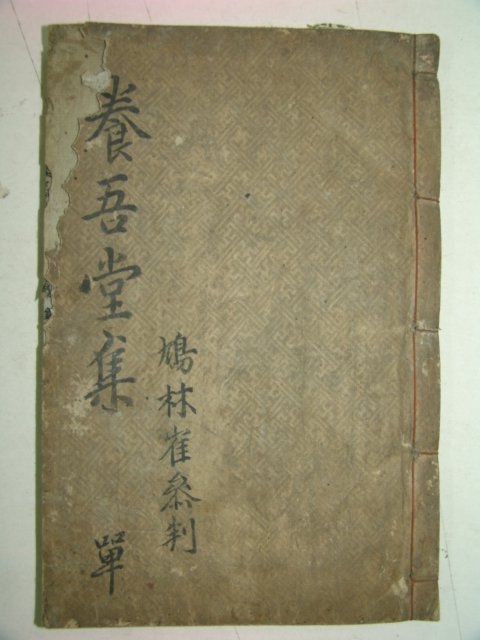 養吾堂集
單
鳩林崔叅判